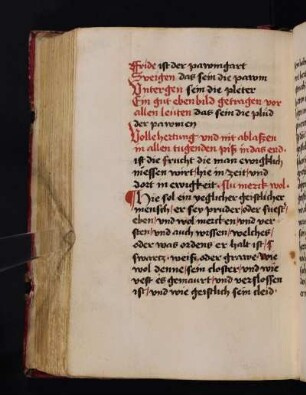 Fride ist der pawmgart
Sveigen das sein die pawm
Vntergen sein die pleter
Ein gut ebenbild getragen vor
allen leuten das sein die plüd
der pawmen
Vollehertung vnd nit ablassen
in allen tugenden piß in das end
ist die frucht die man ewigklich
niessen wirt hie in zeit / vnd
dort in ewigkeit · Nu merck wol ·
Hie sol ein yeglicher geistlicher
mensch / er sey pruder / oder swest
eben / vnd wol mercken / vnd ver
sten / vnd auch wissen / welches /
oder was ordens er halt ist /
swartz · weiß / oder grawe · wie
wol denne / sein closter / vnd wie
vest es gemaurt / vnd verslossen
ist / vnd wie geistlich sein cleid ·